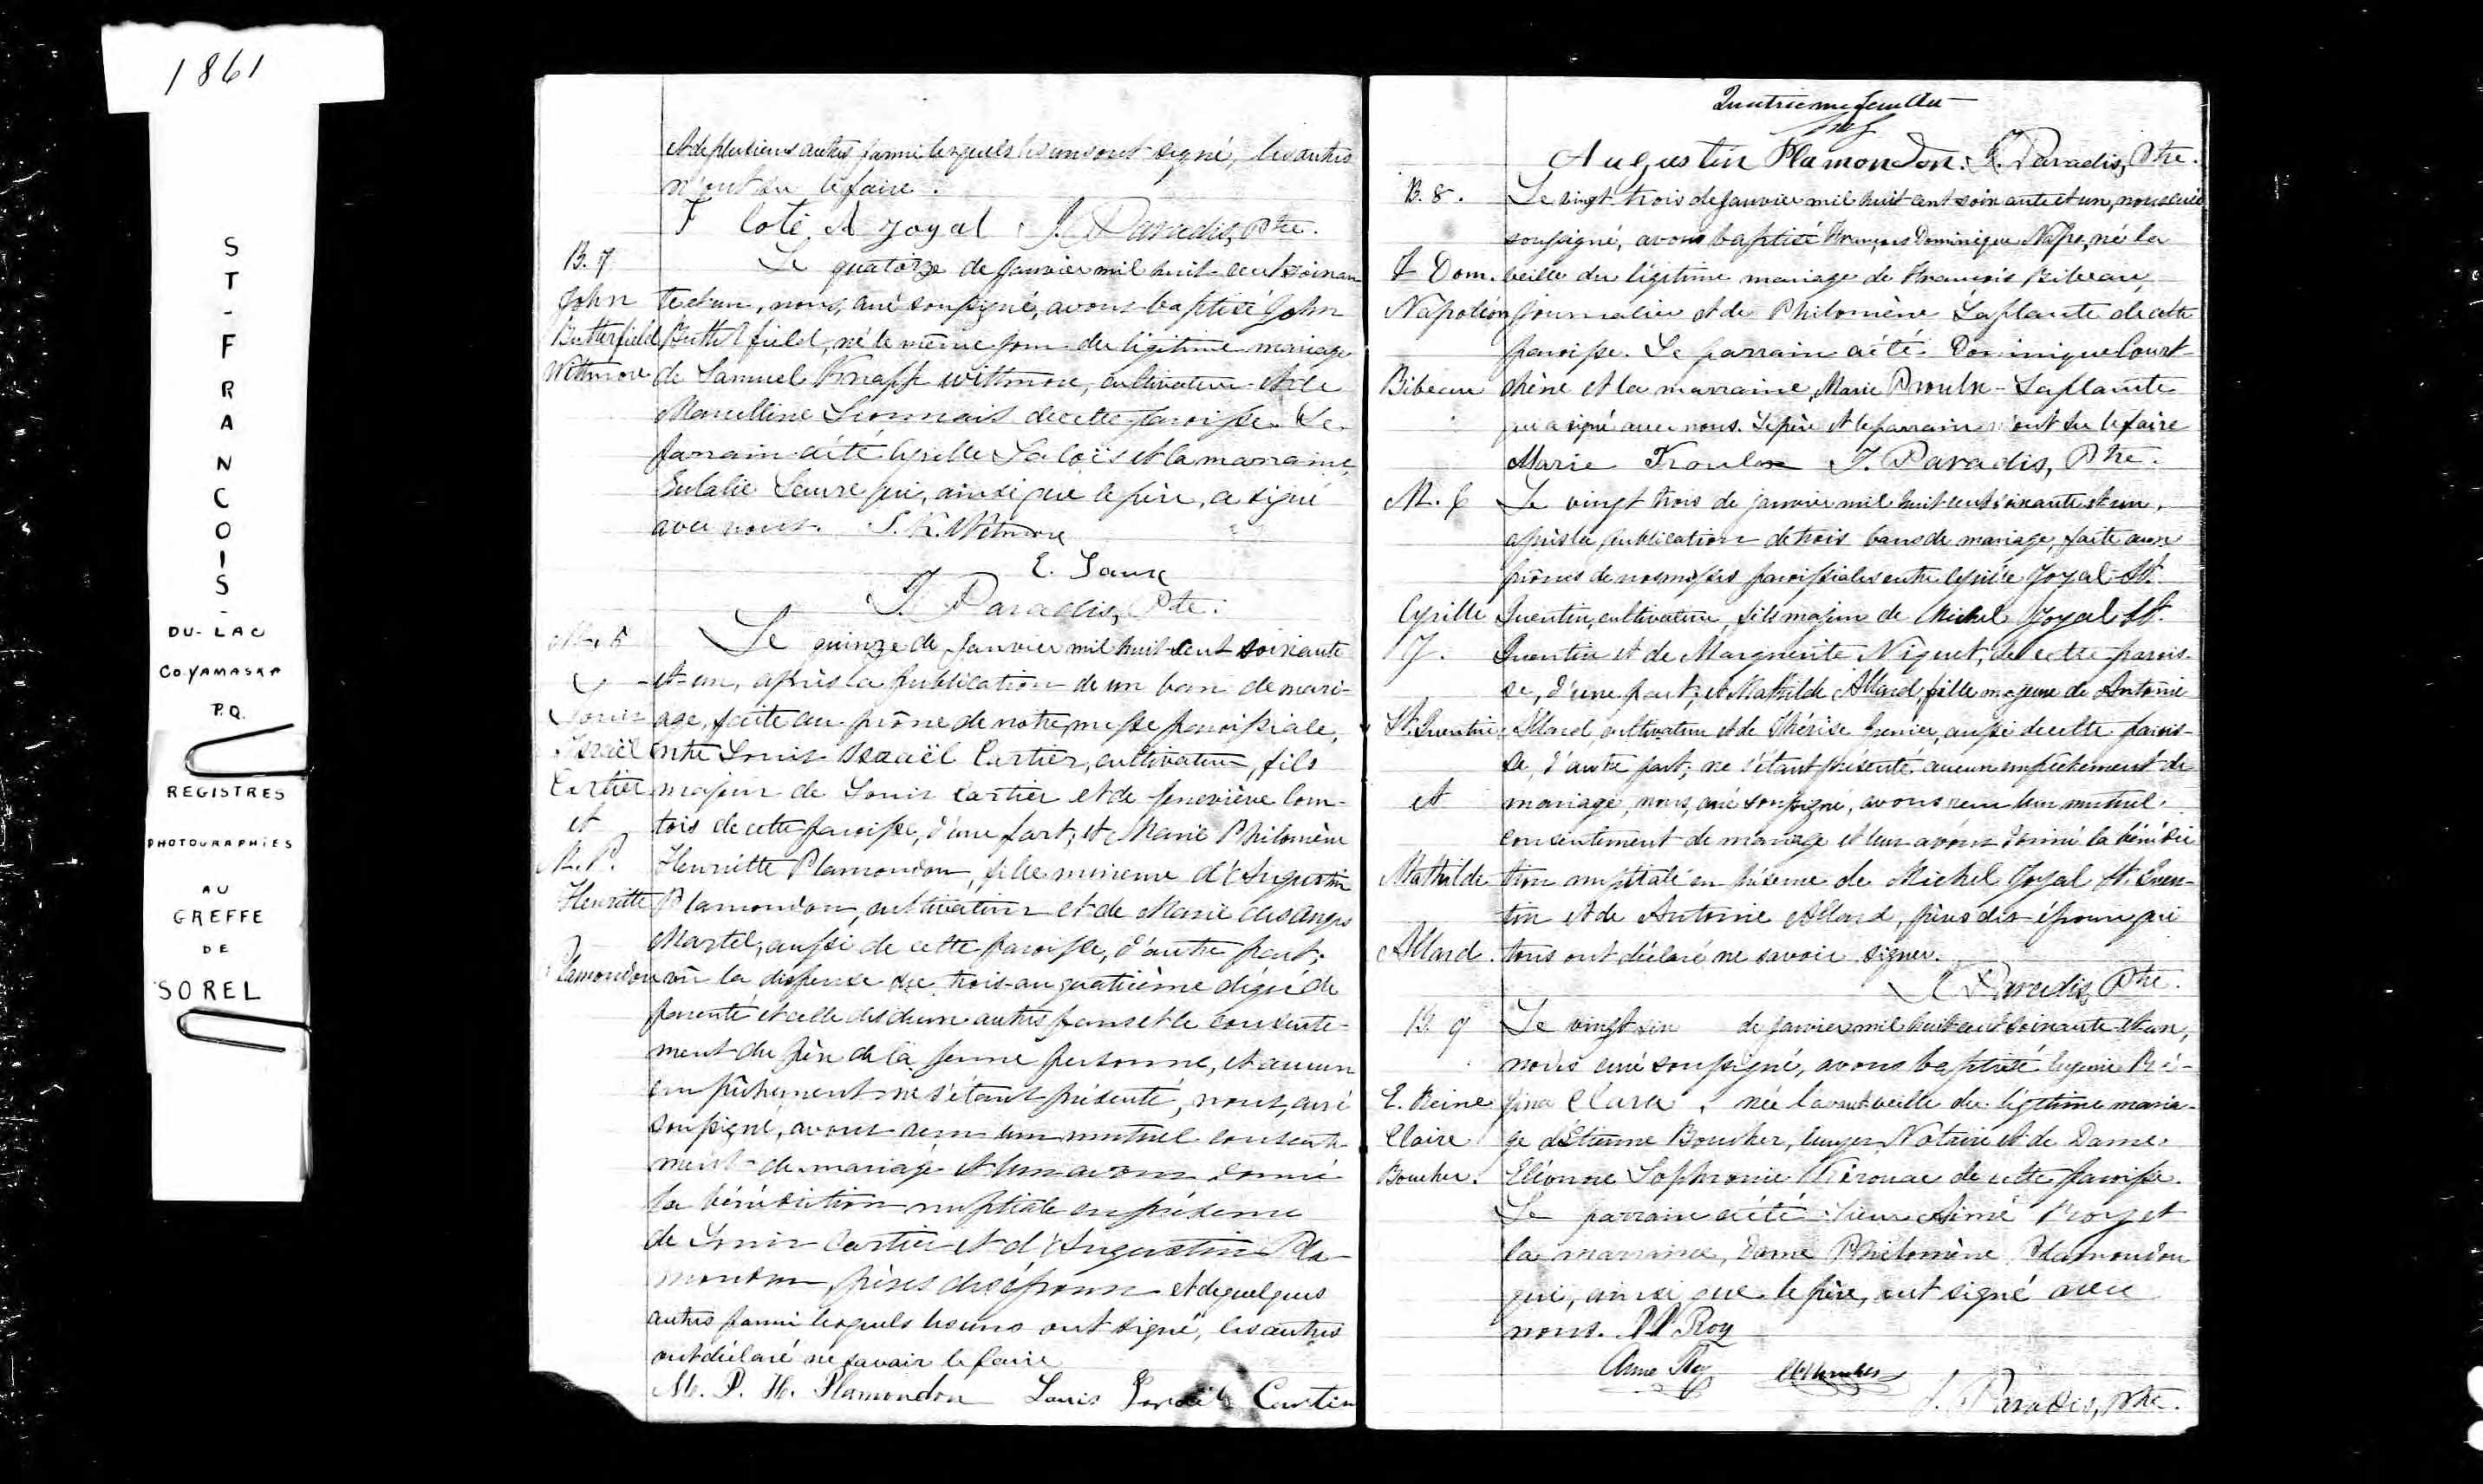 1861
ST-FRANCOIS-
DU-LAC
CO.YAMASKA
P.Q.
REGISTRES
PHOTOGRAPHIES
AU
GREFFE
DE
SOREL
et de plusieurs autres parmi lesquels les uns ont signé, les autres
n'ont su le faire.
F Coté A Joyal J. Paradis, Ptre.
B. 7
John
Butterfield
Wittmore
Le quatorze de Janvier mil huit cent soixan
te et un, nous, curé soussigné, avons baptisé John
Butterfield, né le même jour du légitime mariage
de Samuel Knapp Wittmore, cultivateur et de
Marcelline Lionnais de cette paroisse. Le
parrain a été Cyrille Salois et la marraine,
Eulalie Laure qui, ainsi que le père, a signé
avec nous. S. K. Wetmore
E. Laure
J. Paradis, Ptre.
Louis
Israël
Cartier
et
M. P.
Henriette
Plamondon
Le quinze de Janvier mil huit cent soixante
et un, après la publication de un ban de mari-
age, faite au prône de notre messe paroissiale,
entre Louis Israël Cartier, cultivateur, fils
majeur de Louis Cartier et de Geneviève Com-
tois de cette paroisse, d'une part; et Marie Philomène
Henriette Plamondon, fille mineure d'Augustin
Plamondon, cultivateur et de Marie des Anges
Martel, aussi de cette paroisse, d'autre part;
vû la dispense du trois au quatrième dégré de
parenté et celle des deux autres bans et le consente-
ment du père de la jeune personne, et aucun
empêchement ne s'étant présenté, nous, curé
soussigné, avons reçu leur mutuel consente-
ment de mariage et leur avons donné
la bénédiction nuptiale en présence
de Louis Cartier et d'Augustin Pla-
mondon, pères des époux et de quelques
autres parmi lesquels les uns ont signé, les autres
ont déclaré ne savoir le faire
M. P. H. Plamondon Louis Israël Cartier
Quatrieme feuillet
Augustin Plamondon. J. Paradis, Ptre.
B. 8.
F Dom.
Napoléon
Bibeau
Le vingt trois de Janvier mil huit cent soixante et un, nous curé
soussigné, avons baptisé François Dominique Napo, né la
veille du légitime mariage de François Bibeau,
journalier et de Philomène Laplante de cette
paroisse. Le parrain a été Dominique Court-
chène et la marraine, Marie Proulx-Laplante
qui a signé avec nous. Le père et le parrain n'ont su le faire
Marie Proulx J. Paradis, Ptre.
M. 6
Cyrille
J.
St. Quentin
et
Mathilde
Allard.
Le vingt trois de janvier mil huit cent soixante et un,
après la publication de trois bans de mariage, faite aux
prônes de nos messes paroissiales entre Cyrille Joyal St.
Quentin, cultivateur, fils majeur de Michel Joyal St.
Quentin et de Marguerite Niquet, de cette parois-
se, d'une part; et Mathilde Allard, fille majeure de Antoine
Allard, cultivateur et de Thérèse Grenier, aussi de cette parois-
se, d'autre part; ne s'étant présenté aucun empêchement de
mariage, nous, curé soussigné, avons reçu leur mutuel
consentement de mariage et leur avons donné la bénédic
tion nuptiale en présence de Michel Joyal St. Quen-
tin et de Antoine Allard, pères des époux qui
tous ont déclaré ne savoir signer.
J. Paradis, Ptre.
B. 9
E. Reine
Claire
Boucher.
Le vingt six de janvier mil huit cent soixante et un,
nous curé soussigné, avons baptisé Eugénie Ré-
gina Clara, née l'avant veille du légitime maria-
ge d'Etienne Boucher, Ecuyer, Notaire et de Dame
Eléonore Sophronie Kérouac de cette paroisse.
Le parrain a été Sieur Aimé Roy et
la marraine, Dame Philomène Plamondon
qui, ainsi que le père, ont signé avec
nous. P. P. Roy
Aimé Roy
J. Paradis, Ptre.